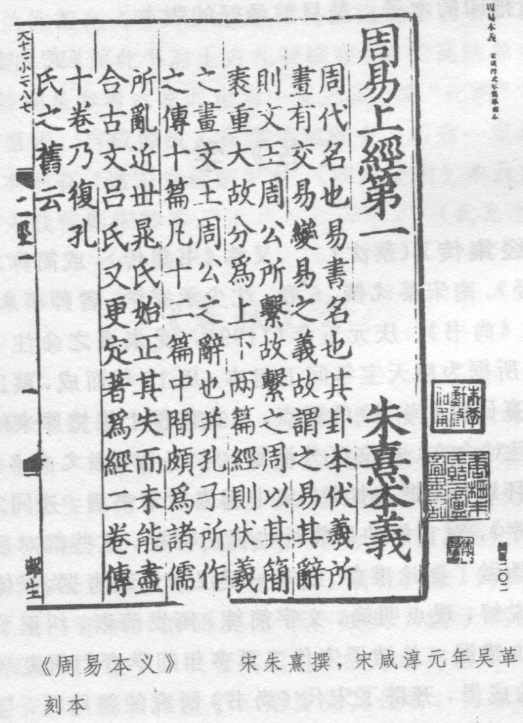 周易上經第一 朱熹本義
周代名也易書名也其卦本伏羲所
畫有交易變易之義故謂之易其辭
則文王周公所繫故繫之周以其簡
袠重大故分爲上下兩篇經則伏羲
之畫文王周公之辭也并孔子所作
之傳十篇凡十二篇中間頗爲諸儒
所亂近世晁氏始正其失而未能盡
合古文呂氏又更定著爲經 卷傳
十卷乃復孔
氏之舊云
《周易本义》 宋朱熹撰,宋咸淳元年吴革
刻本